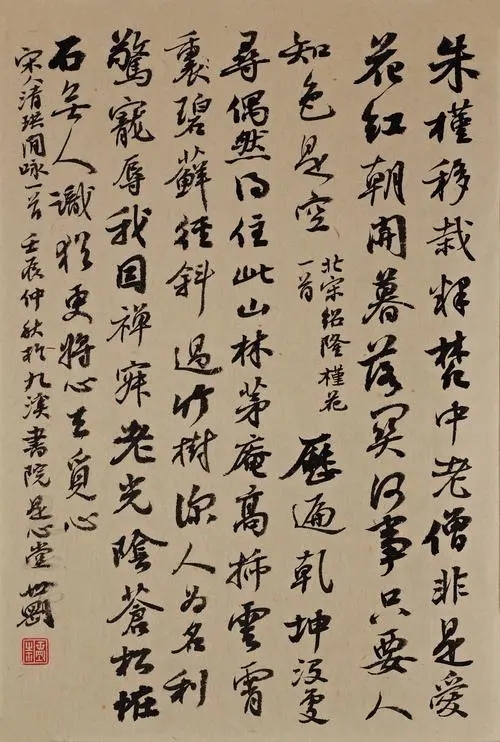 朱槿移栽釋梵中老僧非是愛
花紅朝開暮落關何事只要人
知色是空
北宋紹隆槿花
一首
歷遍乾坤沒處
尋偶然得住此山林茅庵高插雲霄
裏碧蘚徑斜過竹樹深人為名利
驚寵辱我因禪寂老光陰蒼松恠
石無人識猶更將心去覓心
宋人清珙閒詠一首 壬辰仲秋於九溪書院是心堂